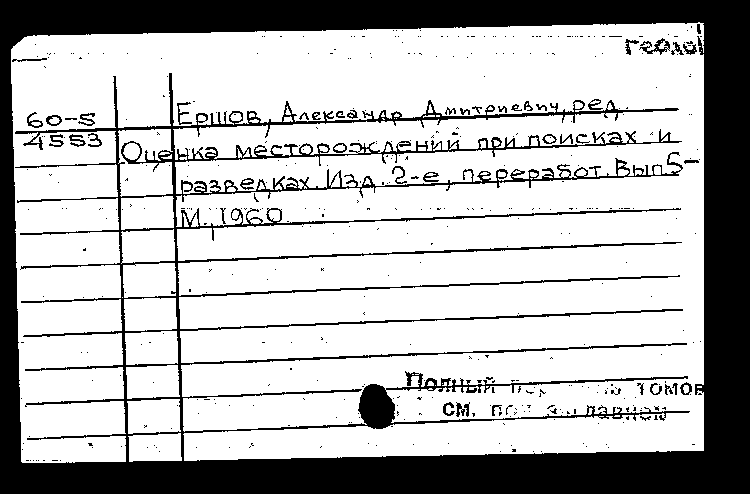 геолог
60-5
4553
Ершов, Александр Дмитриевич, ред.
Оценка месторождений при поисках и
разведках. Изд. 2-е, переработ. Вып 5-
М., 1960
Полный томов
см. заглавием